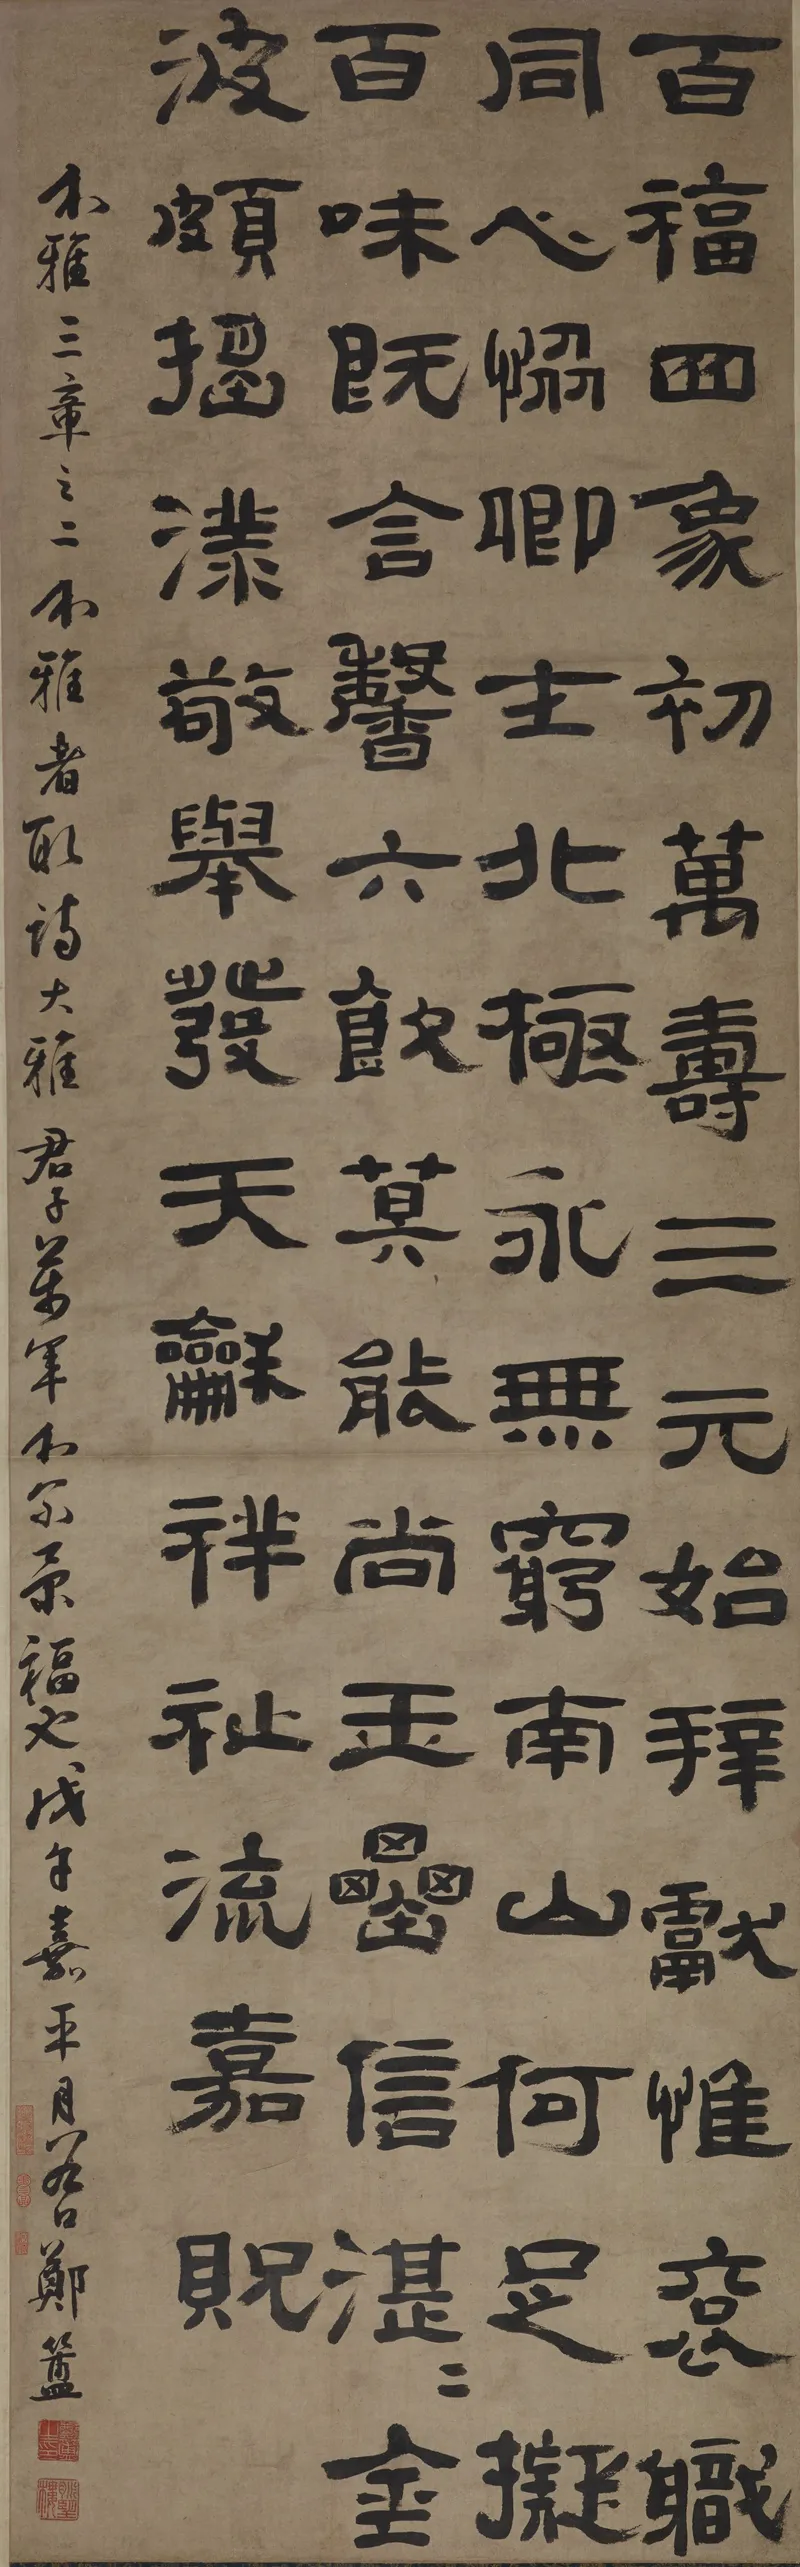 百福四象初萬壽三元始拜獻惟袞職
同心恊卿士北極永無窮南山何足擬
百味既含馨六飲莫能尚玉罍信湛二金
波頗搖漾敬舉發天龢祥祉流嘉貺
介雅三章之二介雅者取詩大雅君子萬年介尔景福也戊午嘉平月谷口鄭簠